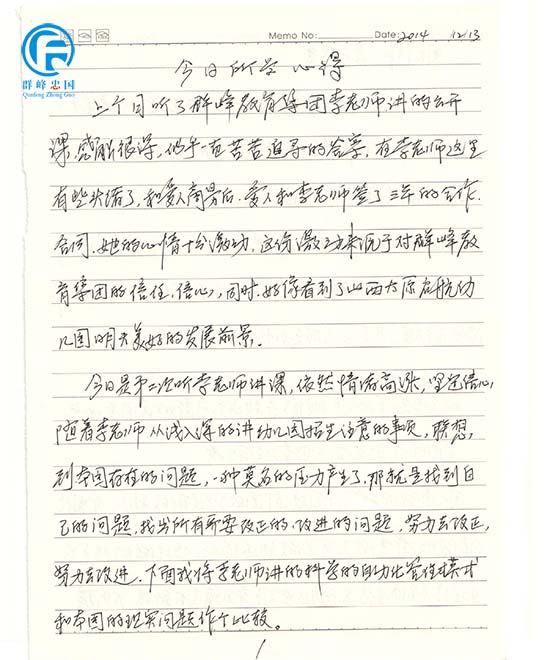 Memo No: Date: 2014 12/13
群峰忠国
Qunfeng Zhong Guo
今日所学心得
上个月听了群峰教育集团李老师讲的公开
课,感触很深,似乎一直苦苦追寻的答案,在李老师这里
有些头绪了,和爱人商量后,爱人和李老师签了三年的合作
合同,她的心情十分激动,这份激动来源于对群峰教
育集团的信任,信心,同时,好像看到了山西太原启航幼
儿园明天美好的发展前景。
今日是第二次听李老师讲课,依然情绪高涨,坚定信心,
随着李老师从浅入深的讲幼儿园招生注意的事项,联想
到本园存在的问题,一种莫名的压力产生了,那就是找到自
己的问题,找出所有需要改正的,改进的问题,努力去改正,
努力去改进。下面我将李老师讲的科学的自动化管理模式
和本园的现实问题作个比较。
1